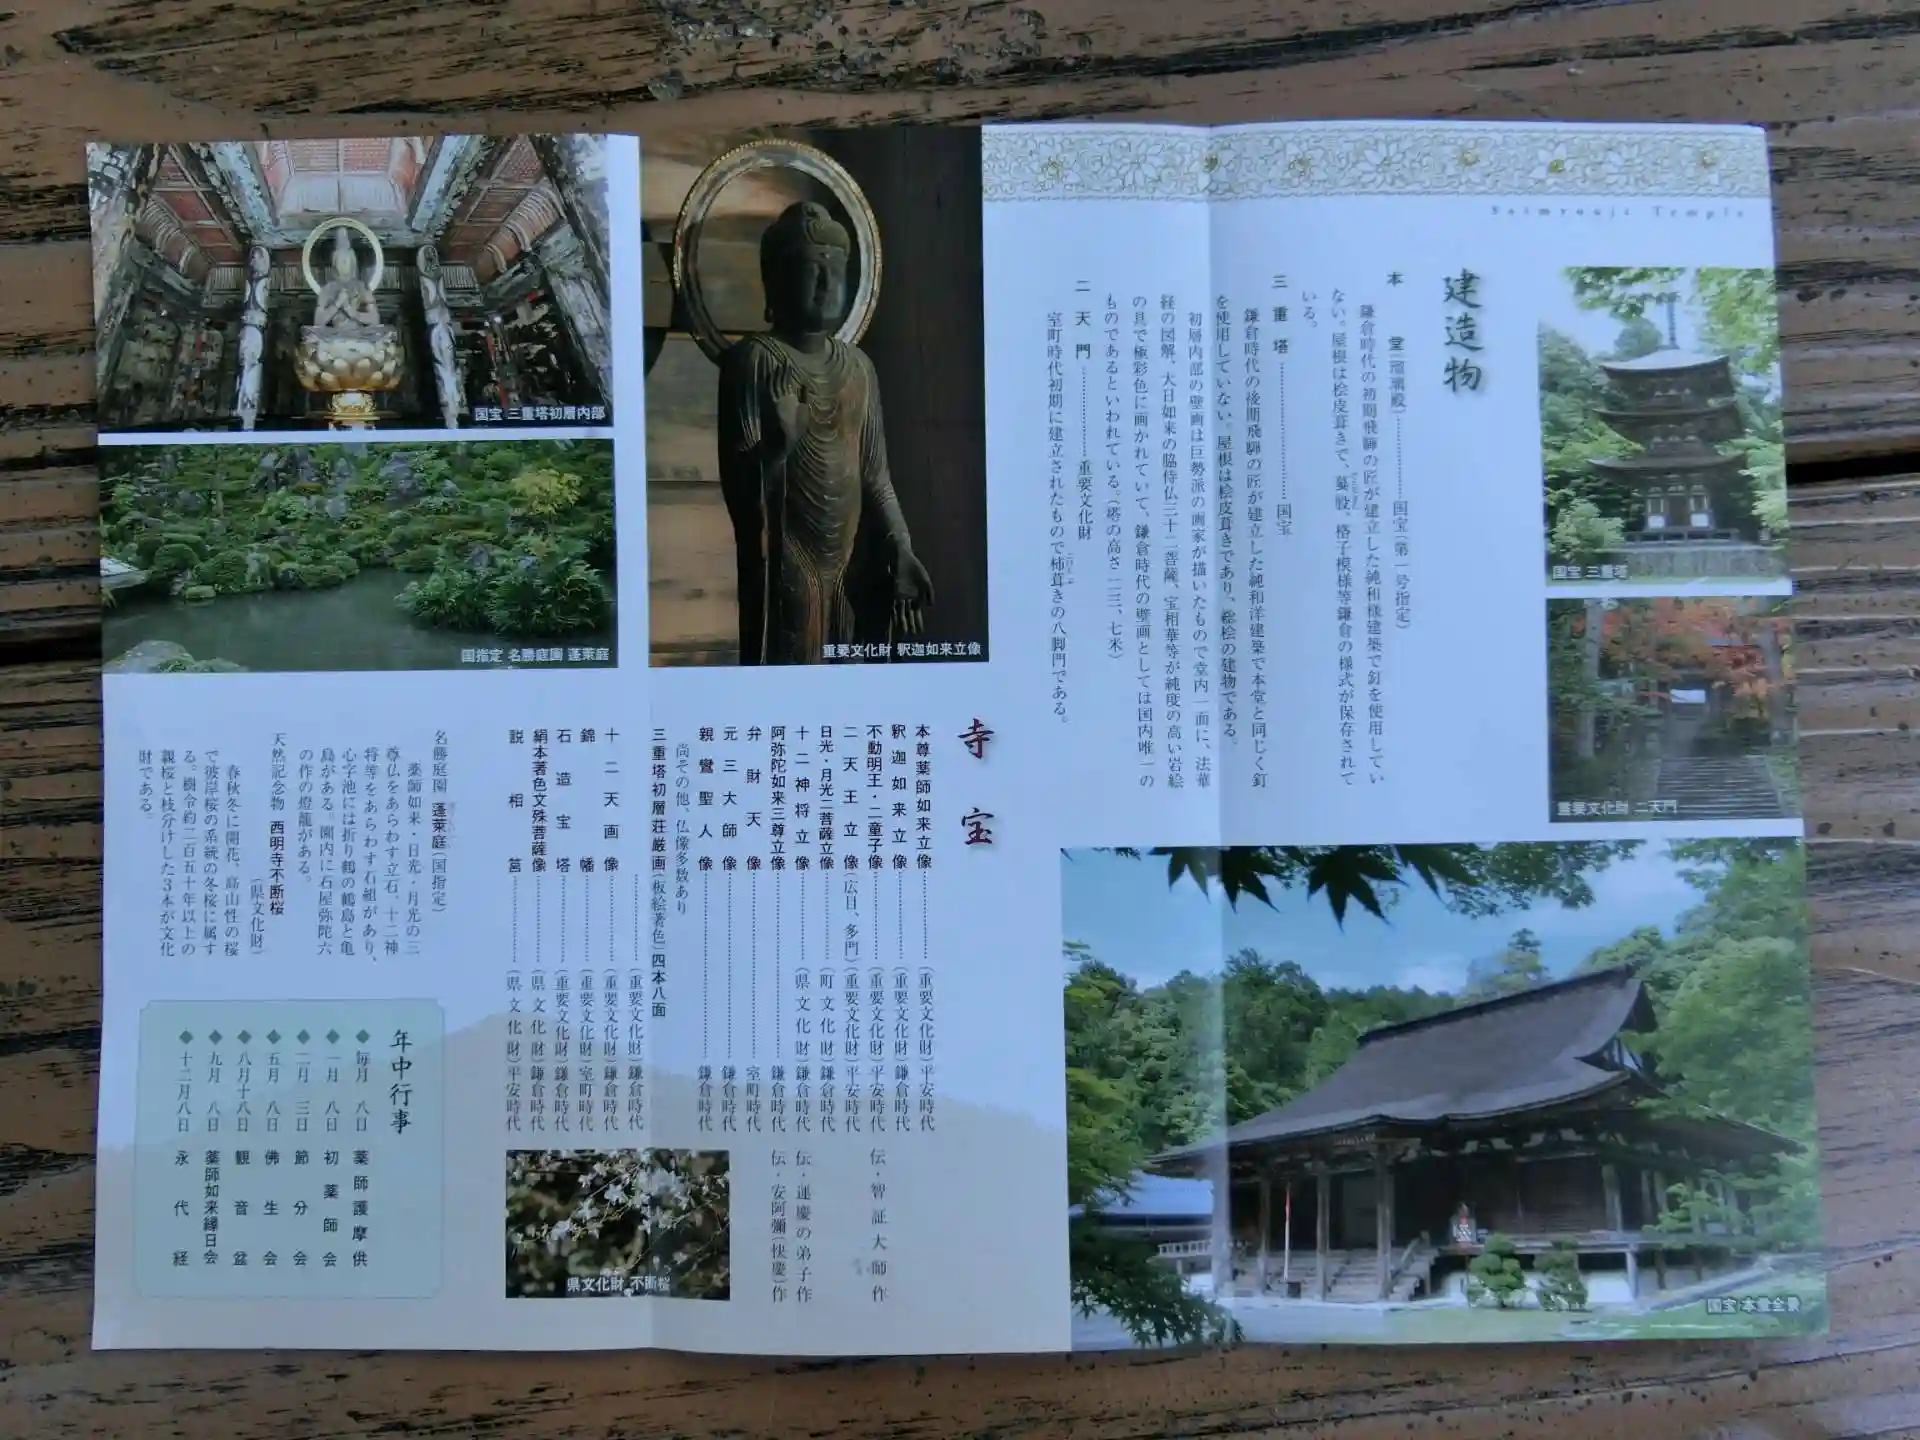 Saimyouji Temple
建造物
本堂(瑠璃殿)…………国宝(第一号指定)
鎌倉時代の初期飛騨の匠が建立した純和様建築で釘を使用してい
ない。屋根は桧皮葺きで、蟇股、格子模様等鎌倉の様式が保存されて
いる。
三重塔……………国宝
鎌倉時代の後期飛騨の匠が建立した純和洋建築で本堂と同じく釘
を使用していない。屋根は桧皮葺きであり、総桧の建物である。
初層内部の壁画は巨勢派の画家が描いたもので堂内一面に、法華
経の図解、大日如来の脇侍仏三十二菩薩、宝相華等が純度の高い岩絵
の具で極彩色に画かれていて、鎌倉時代の壁画としては国内唯一の
ものであるといわれている。(塔の高さ二三、七米)
二天門……………重要文化財
室町時代初期に建立されたもので柿葺きの八脚門である。
国宝 三重塔
重要文化財 二天門
国宝 本堂全景
国宝 三重塔初層内部
国指定 名勝庭園 蓬莱庭
重要文化財 釈迦如来立像
寺宝
本尊薬師如来立像……………(重要文化財)平安時代
釈迦如来立像……………(重要文化財)鎌倉時代
不動明王・二童子像……………(重要文化財)平安時代 伝・智証大師作
二天王立像(広目、多門)(重要文化財)平安時代
日光・月光二菩薩立像……………(町文化財)鎌倉時代
十二神将立像……………(県文化財)鎌倉時代 伝・運慶の弟子作
阿弥陀如来三尊立像……………鎌倉時代 伝・安阿彌(快慶)作
弁財天像……………室町時代
元三大師像……………鎌倉時代
親鸞聖人像……………鎌倉時代
尚その他、仏像多数あり
三重塔初層荘厳画(板絵著色)四本八面
……………(重要文化財)鎌倉時代
十二天画像……………(重要文化財)鎌倉時代
錦幡……………(重要文化財)室町時代
石造宝塔……………(重要文化財)鎌倉時代
絹本著色文殊菩薩像……………(県文化財)鎌倉時代
説相筥……………(県文化財)平安時代
名勝庭園 蓬莱庭(国指定)
薬師如来・日光・月光の三
尊仏をあらわす立石、十二神
将等をあらわす石組があり、
心字池には折り鶴の鶴島と亀
島がある。園内に石屋弥陀六
の作の燈籠がある。
天然記念物 西明寺不断桜
(県文化財)
春秋冬に開花、高山性の桜
で彼岸桜の系統の冬桜に属す
る。樹令約二百五十年以上の
親桜と枝分けした3本が文化
財である。
県文化財 不断桜
年中行事
◆毎月八日 薬師護摩供
◆一月八日 初薬師会
◆二月三日 節分会
◆五月八日 佛生会
◆八月十八日 観音盆
◆九月八日 薬師如来縁日会
◆十二月八日 永代経